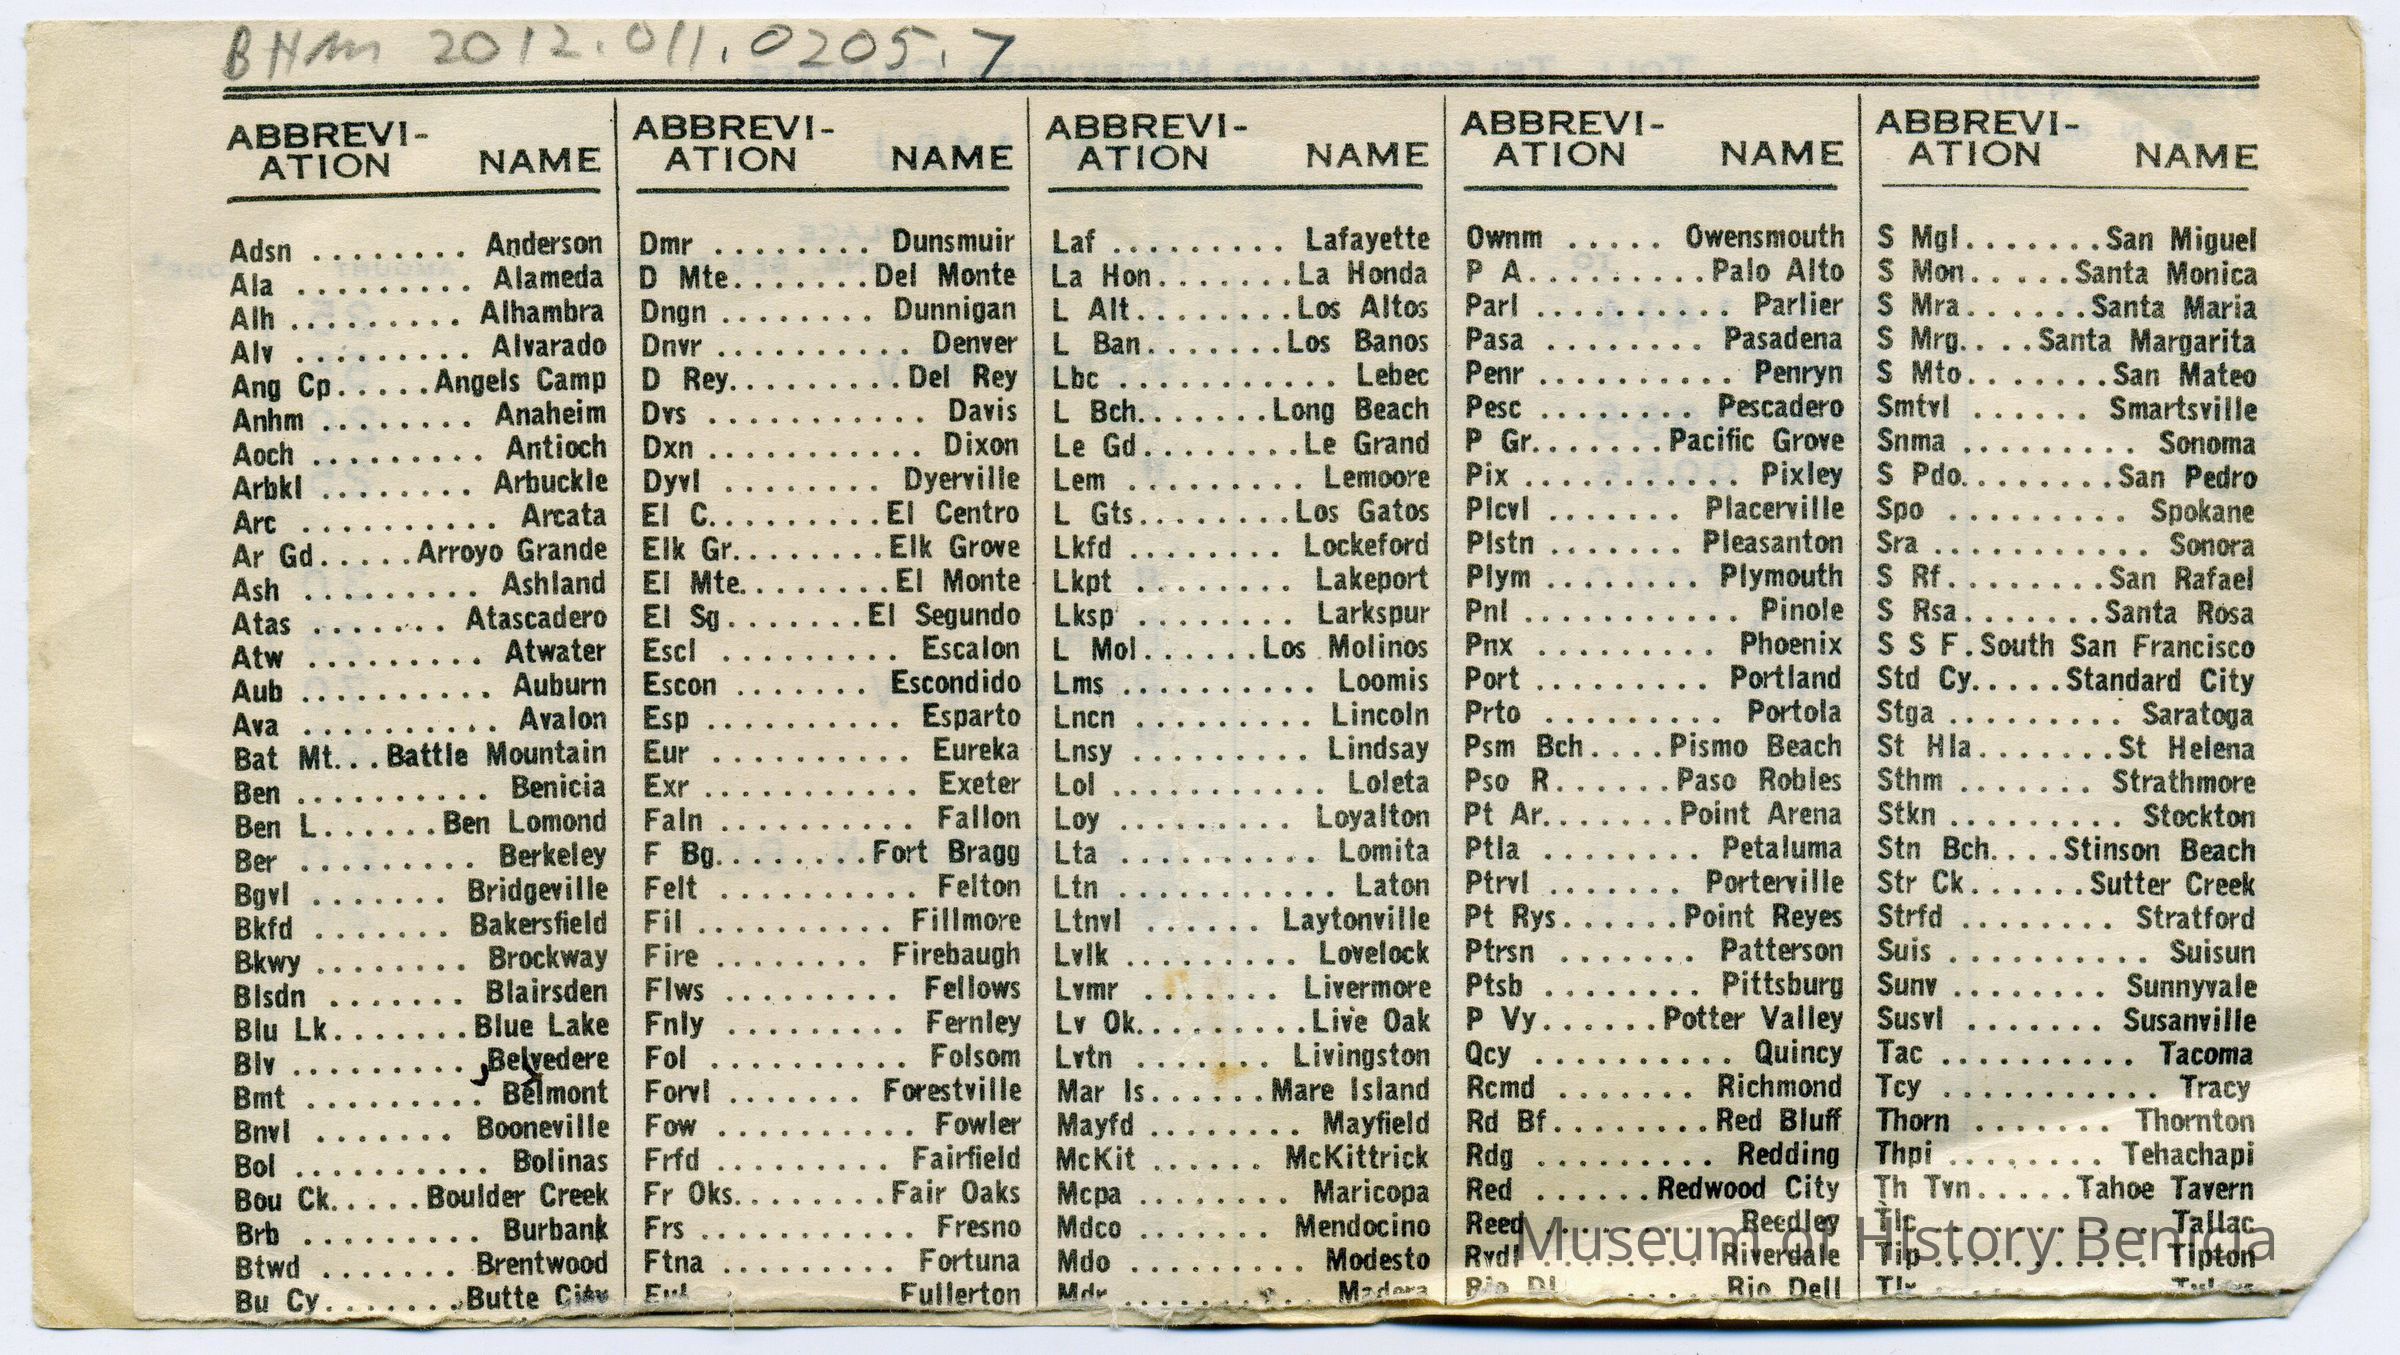 BHM 2012.011.0205.7
ABBREVI-
ATION NAME
Adsn ........ Anderson
Ala ......... Alameda
Alh ......... Alhambra
Alv ......... Alvarado
Ang Cp.....Angels Camp
Anhm ........ Anaheim
Aoch ......... Antioch
Arbkl ........ Arbuckle
Arc .......... Arcata
Ar Gd.....Arroyo Grande
Ash ......... Ashland
Atas ....... Atascadero
Atw ......... Atwater
Aub .......... Auburn
Ava .......... Avalon
Bat Mt...Battle Mountain
Ben .......... Benicia
Ben L......Ben Lomond
Ber ......... Berkeley
Bgvl ....... Bridgeville
Bkfd ....... Bakersfield
Bkwy ........ Brockway
Blsdn ....... Blairsden
Blu Lk.......Blue Lake
Blv ......... Belvedere
Bmt ......... Belmont
Bnvl ....... Booneville
Bol .......... Bolinas
Bou Ck.....Boulder Creek
Brb ......... Burbank
Btwd ....... Brentwood
Bu Cy.......Butte City
ABBREVI-
ATION NAME
Dmr ........ Dunsmuir
D Mte.......Del Monte
Dngn ........ Dunnigan
Dnvr .......... Denver
D Rey.........Del Rey
Dvs ........... Davis
Dxn ........... Dixon
Dyvl ........ Dyerville
El C.........El Centro
Elk Gr........Elk Grove
El Mte........El Monte
El Sg.......El Segundo
Escl ......... Escalon
Escon ....... Escondido
Esp .......... Esparto
Eur .......... Eureka
Exr ........... Exeter
Faln .......... Fallon
F Bg........Fort Bragg
Felt .......... Felton
Fil .......... Fillmore
Fire ........ Firebaugh
Flws ......... Fellows
Fnly ......... Fernley
Fol .......... Folsom
Forvl ....... Forestville
Fow .......... Fowler
Frfd ......... Fairfield
Fr Oks........Fair Oaks
Frs ........... Fresno
Ftna ......... Fortuna
Fullerton
ABBREVI-
ATION NAME
Laf ......... Lafayette
La Hon.......La Honda
L Alt........Los Altos
L Ban.......Los Banos
Lbc ........... Lebec
L Bch.......Long Beach
Le Gd........Le Grand
Lem ......... Lemoore
L Gts........Los Gatos
Lkfd ........ Lockeford
Lkpt ......... Lakeport
Lksp ........ Larkspur
L Mol......Los Molinos
Lms .......... Loomis
Lncn ......... Lincoln
Lnsy ......... Lindsay
Lol ........... Loleta
Loy ......... Loyalton
Lta .......... Lomita
Ltn ........... Laton
Ltnvl ...... Laytonville
Lvlk ......... Lovelock
Lvmr ....... Livermore
Lv Ok.........Live Oak
Lvtn ....... Livingston
Mar Is......Mare Island
Mayfd ........ Mayfield
McKit ...... McKittrick
Mcpa ........ Maricopa
Mdco ....... Mendocino
Mdo ......... Modesto
Mdr .......... Madera
ABBREVI-
ATION NAME
Ownm ..... Owensmouth
P A.........Palo Alto
Parl .......... Parlier
Pasa ........ Pasadena
Penr .......... Penryn
Pesc ........ Pescadero
P Gr.......Pacific Grove
Pix ........... Pixley
Plcvl ....... Placerville
Plstn ....... Pleasanton
Plym ........ Plymouth
Pnl ........... Pinole
Pnx ......... Phoenix
Port ......... Portland
Prto ......... Portola
Psm Bch....Pismo Beach
Pso R......Paso Robles
Pt Ar.......Point Arena
Ptla ........ Petaluma
Ptrvl ....... Porterville
Pt Rys......Point Reyes
Ptrsn ....... Patterson
Ptsb ........ Pittsburg
P Vy......Potter Valley
Qcy .......... Quincy
Rcmd ....... Richmond
Rd Bf........Red Bluff
Rdg ......... Redding
Red ......Redwood City
Reed ......... Reedley
Rvdl ........ Riverdale
Rio Dl ....... Rio Dell
ABBREVI-
ATION NAME
S Mgl.......San Miguel
S Mon.....Santa Monica
S Mra......Santa Maria
S Mrg....Santa Margarita
S Mto.......San Mateo
Smtvl ...... Smartsville
Snma ......... Sonoma
S Pdo........San Pedro
Spo ......... Spokane
Sra ........... Sonora
S Rf........San Rafael
S Rsa.......Santa Rosa
S S F.South San Francisco
Std Cy.....Standard City
Stga ......... Saratoga
St Hla.......St Helena
Sthm ....... Strathmore
Stkn ......... Stockton
Stn Bch....Stinson Beach
Str Ck......Sutter Creek
Strfd ........ Stratford
Suis .......... Suisun
Sunv ........ Sunnyvale
Susvl ....... Susanville
Tac .......... Tacoma
Tcy ........... Tracy
Thorn ....... Thornton
Thpi ........ Tehachapi
Th Tvn.....Tahoe Tavern
Tlc ........... Tallac
Tip ........... Tipton
Museum of History Benicia